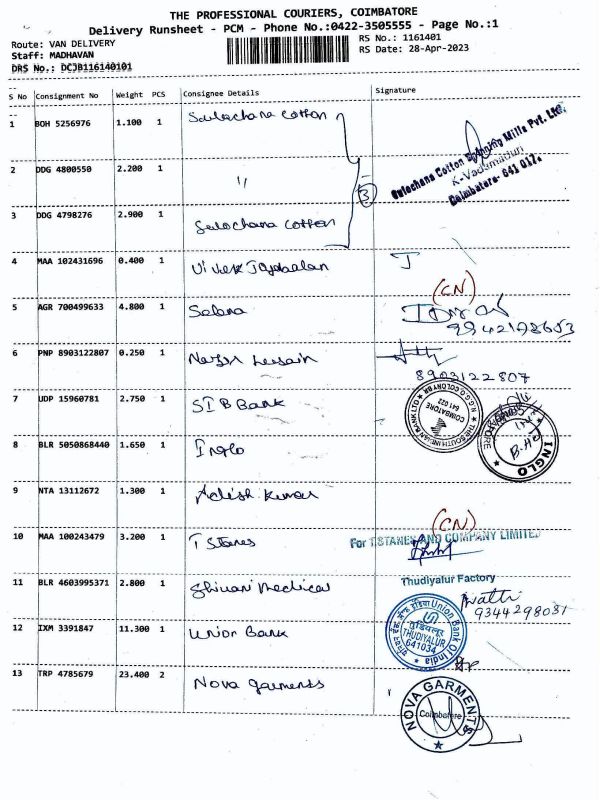 THE PROFESSIONAL COURIERS, COIMBATORE
Delivery Runsheet - PCM - Phone No.:0422-3505555 - Page No.:1
Route: VAN DELIVERY
RS No.: 1161401
Staff: MADHAVAN
RS Date: 28-Apr-2023
DRS No.: DCJB116140101
S No Consignment No Weight PCS Consignee Details Signature
1 BOH 5256976 1.100 1 Sulochana Cotton
Sulochana Cotton Spinning Mills Pvt. Ltd.
K-Vadamaduri
Coimbatore- 641 017.
2 DDG 4800550 2.200 1 "
3
3 DDG 4798276 2.900 1 Sulochana Cotton
4 MAA 102431696 0.400 1 Vivek
(CN)
5 AGR 700499633 4.800 1
6 PNP 8903122807 0.250 1
8903122807
7 UDP 15960781 2.750 1 SIB Bank
THE SOUTH INDIAN BANK LTD
N.G.G.O COLONY BR
COIMBATORE
641 022
8 BLR 5050868440 1.650 1 Inglo
INGLO
9 NTA 13112672 1.300 1 Kumar
(CN)
10 MAA 100243479 3.200 1 T Stanes
For T.STANES AND COMPANY LIMITED
11 BLR 4603995371 2.800 1 Medical
Thudiyalur Factory
9344298031
12 IXM 3391847 11.300 1 Union Bank
Union Bank Of India
THUDIYALUR
641034
13 TRP 4785679 23.400 2 Nova garments
NOVA GARMENTS
Coimbatore